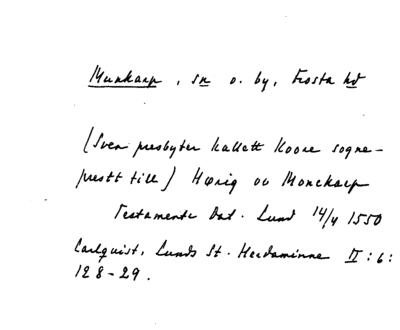 Munkarp, sn o. by, Frosta hd
(Sven presbyter kallett Koore sogne-
prestt till) Hørig oc Monckarp
Testamente dat. Lund 14/4 1550
Carlquist, Lunds St. Herdaminne II:6:
128-29.